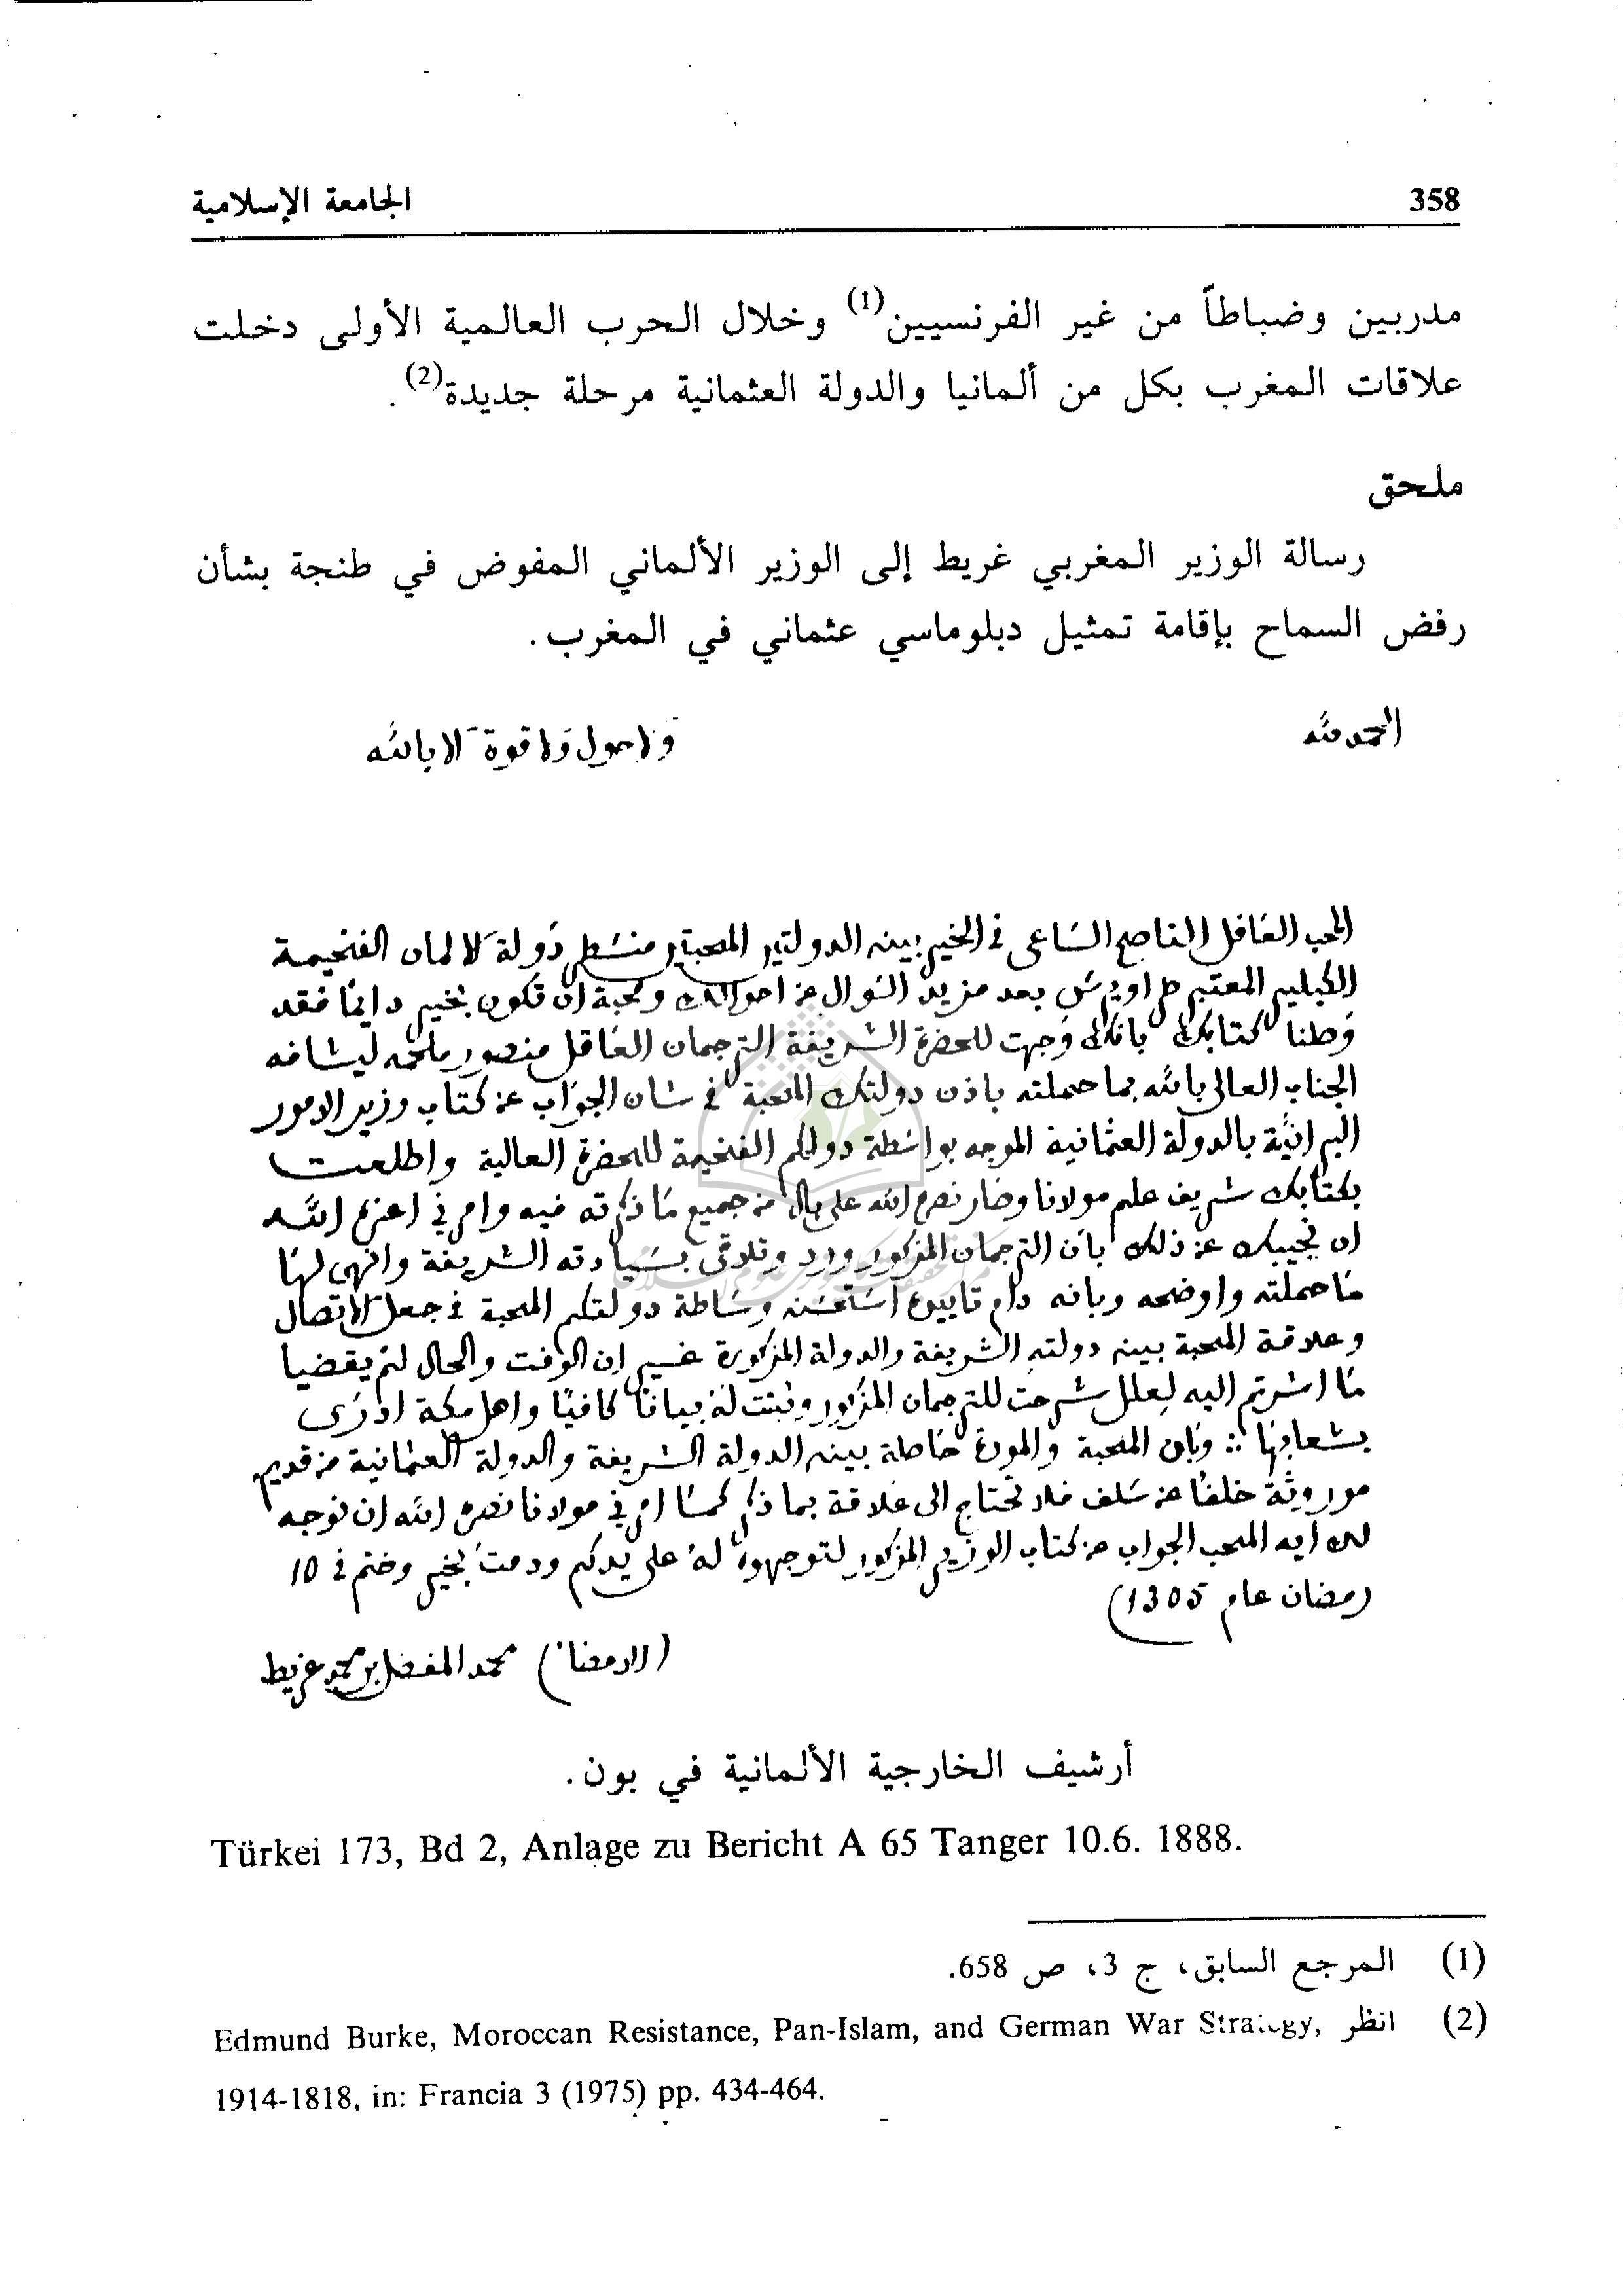 358 الجامعة الإسلامية
مدربين وضباطاً من غير الفرنسيين(1) وخلال الحرب العالمية الأولى دخلت
علاقات المغرب بكل من ألمانيا والدولة العثمانية مرحلة جديدة(2).
ملحق
رسالة الوزير المغربي غريط إلى الوزير الألماني المفوض في طنجة بشأن
رفض السماح بإقامة تمثيل دبلوماسي عثماني في المغرب.
الحمد لله ولا حول ولا قوة الا بالله
المحب العاقل الناصح الساعي في الخير بين الدولتين المحبتين منسطر دولة الالمان الفخيمة
الكبلير المعتبر طراوبرتس بعد مزيد السوال عن احوالك ومحبة ان تكون بخير دايما فقد
وصلنا كتابك بانك وجهت للحضرة الشريفة الترجمان العاقل منصور ملحمه ليشافه
الجناب العالي بالله بما حملته باذن دولتك المحبة في شان الجواب عن كتاب وزير الامور
البرانية بالدولة العثمانية الموجه بواسطة دولتكم الفخيمة للحضرة العالية واطلعت
بكتابك شريف علم مولانا وصار نصره الله على بال من جميع ما ذكرته فيه وامرني اعزه الله
ان نجيبك عن ذلك بان الترجمان المذكور ورد وتلاقى بسيادته الشريفة وانهى لها
ما حملته واوضحه وبانه دام تاييده استحسن وساطة دولتكم المحبة في جعل الاتصال
وعلاقة المحبة بين دولته الشريفة والدولة المذكورة غير ان الوقت والحال لم يقضيا
ما اشرتم اليه لعلل شرحت للترجمان المذكور وبينت له بيانا كافيا واهل مكة ادرى
بشعابها :: وبان المحبة والمودة حاصلة بين الدولة الشريفة والدولة العثمانية من قديم
موروثة خلفا عن سلف فلا تحتاج الى علاقة بما ذكر كما امرني مولانا نصره الله ان نوجه
لك ايه المحب الجواب عن كتاب الوزير المذكور لتوجهوه له على يدكم ودمت بخير وختم في 10
رمضان عام 1305)
(الامضا) محمد المفضل بن محمد غريط
أرشيف الخارجية الألمانية في بون.
Türkei 173, Bd 2, Anlage zu Bericht A 65 Tanger 10.6. 1888.
(1) المرجع السابق، ج 3، ص 658.
(2) انظر Edmund Burke, Moroccan Resistance, Pan-Islam, and German War Strategy,
1914-1818, in: Francia 3 (1975) pp. 434-464.